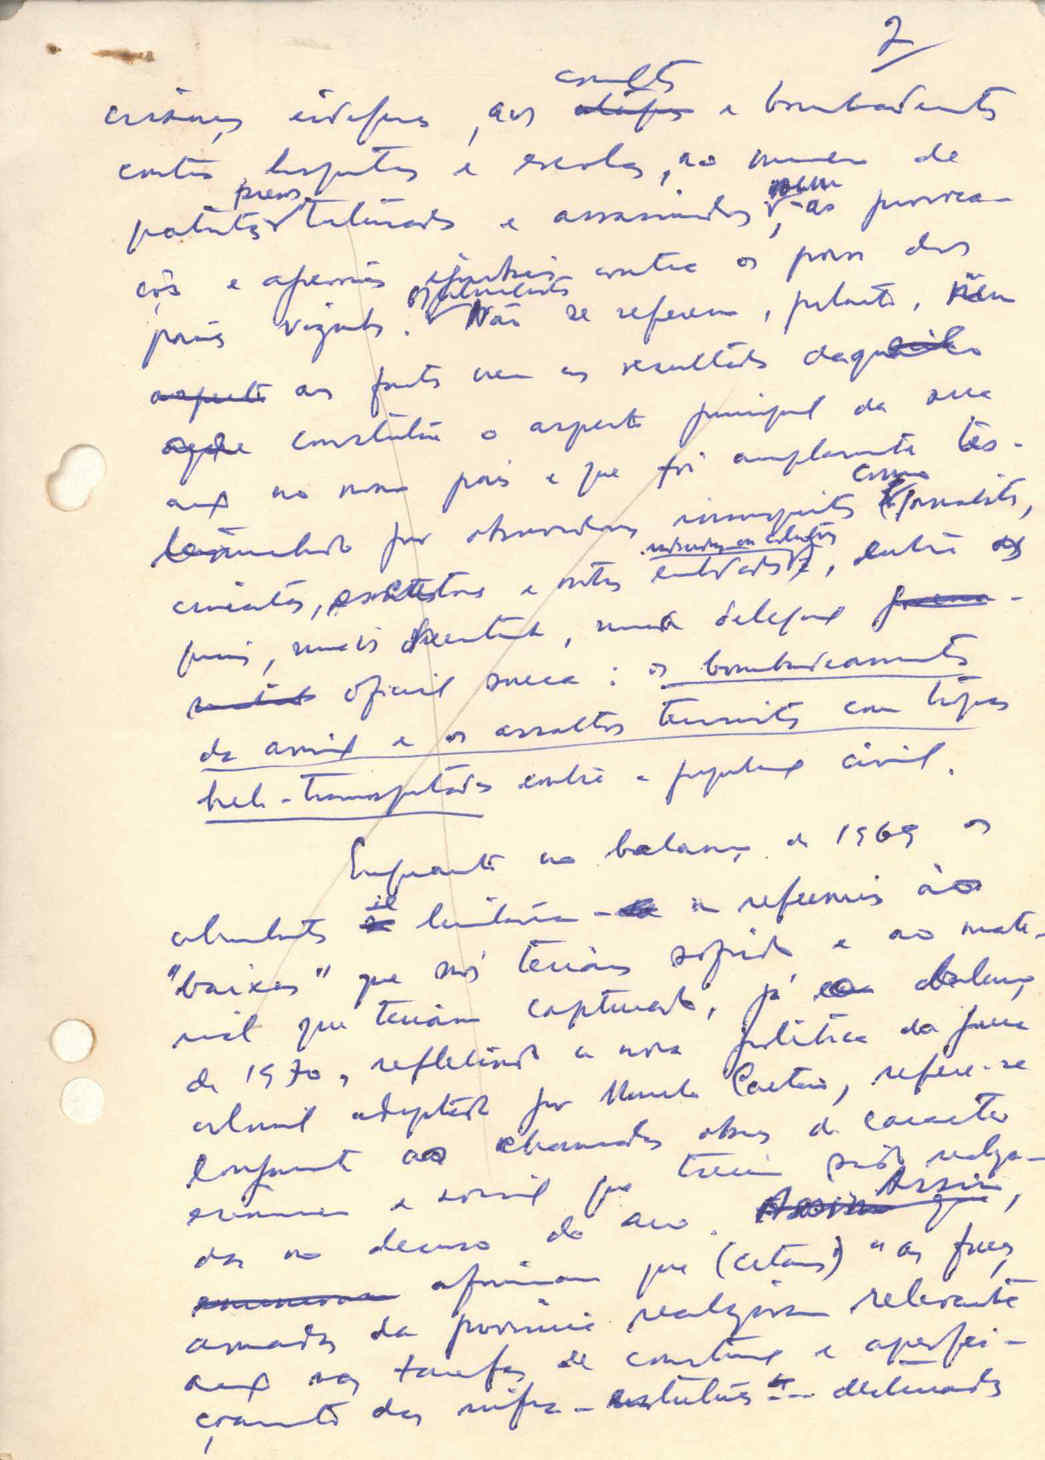 2
crianças indefesas, aos assaltos e bombardeamentos
contra hospitais e escolas, ao numero de
patriotas presos torturados e assassinados, nem às provoca-
ções e agressões contra os povos dos
países vizinhos. Não se referem, portanto, nem
aspecto aos factos nem aos resultados daquilo
que constitui o aspecto principal da sua
acção no nosso país e que foi amplamente tes-
temunhado por observadores insuspeitos como jornalistas,
cineastas, escritores e outras entidades, entre os
quais, mais recentemente, uma delegação
oficial sueca: os bombardeamentos
da aviação e os assaltos terroristas com tropas
heli-transportadas contra a população civil.
Enquanto no balanço de 1969 os
colonialistas limitaram-se a referências às
"baixas" que nós teriamos sofrido e ao mate-
rial que teriam capturado, já o balanço
de 1970, reflectindo a nova politica da guerra
colonial adoptada por Marcelo Caetano, refere-se
longamente às chamadas obras de caracter
economico e social que teriam sido realiza-
das no decurso do ano. Assim que Assim,
afirmam que (citamos) "as forças
armadas da provincia realizaram relevante
acção nas tarefas de construção e aperfei-
çoamento das infra-estruturas" - destinadas